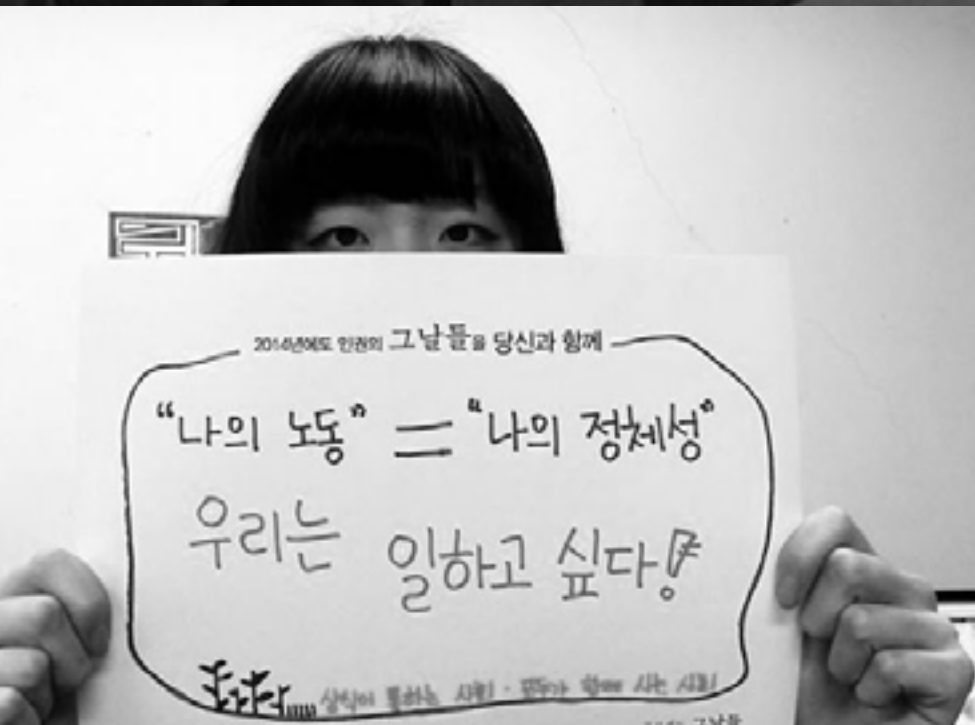 2014년에도 인권의 그날들을 당신과 함께
“나의 노동” = “나의 정체성”
우리는 일하고 싶다!
상식이 통하는 사회 · 모두가 함께 사는 사회
그날들